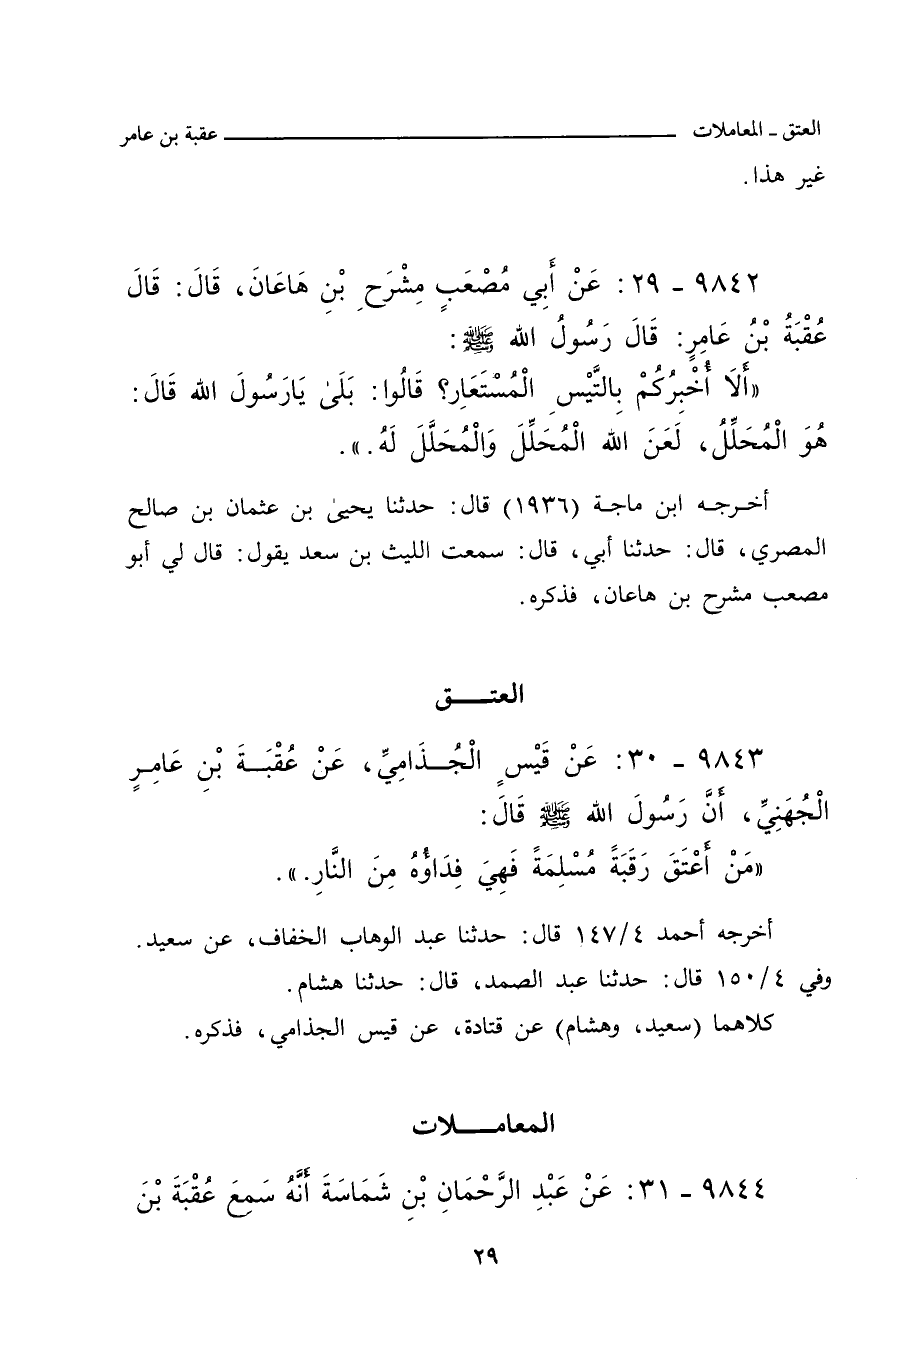 العتق ـ المعاملات ـــــــــــــــــــــــــــــ عقبة بن عامر
غير هذا .
٩٨٤٢ ـ ٢٩ : عَنْ أَبِي مُصْعَبٍ مِشْرَحِ بْنِ هَاعَانَ، قَالَ : قَالَ
عُقْبَةُ بْنُ عَامِرٍ: قَالَ رَسُولُ الله ﷺ :
«أَلَا أُخْبِرُكُمْ بِالتَّيْسِ الْمُسْتَعَارِ؟ قَالُوا : بَلَىٰ يَارَسُولَ الله قَالَ :
هُوَ الْمُحَلِّلُ، لَعَنَ الله الْمُحَلِّلَ وَالْمُحَلَّلَ لَهُ .» .
أخـرجـه ابن ماجـة (١٩٣٦) قال : حدثنا يحيىٰ بن عثمان بن صالح
المصري، قال : حدثنا أبي، قال : سمعت الليث بن سعد يقول : قال لي أبو
مصعب مشرح بن هاعان، فذكره .
العتـــــق
٩٨٤٣ ـ ٣٠ : عَنْ قَيْسٍ الْجُـــذَامِيِّ، عَنْ عُقْبَـــةَ بْنِ عَامِـرٍ
الْجُهَنِيِّ، أَنَّ رَسُولَ الله ﷺ قَالَ :
«مَنْ أَعْتَقَ رَقَبَةً مُسْلِمَةً فَهِيَ فِدَاؤُهُ مِنَ النَّارِ .» .
أخرجه أحمد ١٤٧/٤ قال : حدثنا عبد الوهاب الخفاف، عن سعيد .
وفي ١٥٠/٤ قال : حدثنا عبد الصمد، قال : حدثنا هشام .
كلاهما (سعيد، وهشام) عن قتادة، عن قيس الجذامي، فذكره .
المعامـــــلات
٩٨٤٤ ـ ٣١ : عَنْ عَبْدِ الرَّحْمَانِ بْنِ شَمَاسَةَ أَنَّهُ سَمِعَ عُقْبَةَ بْنَ
٢٩